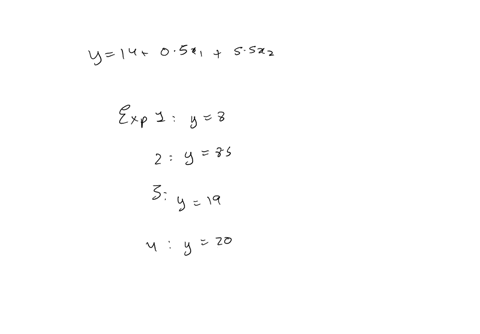 y = 14 + 0.5x₁ + 5.5x₂
Exp 1 : y = 8
2 : y = 85
3 : y = 19
4 : y = 20